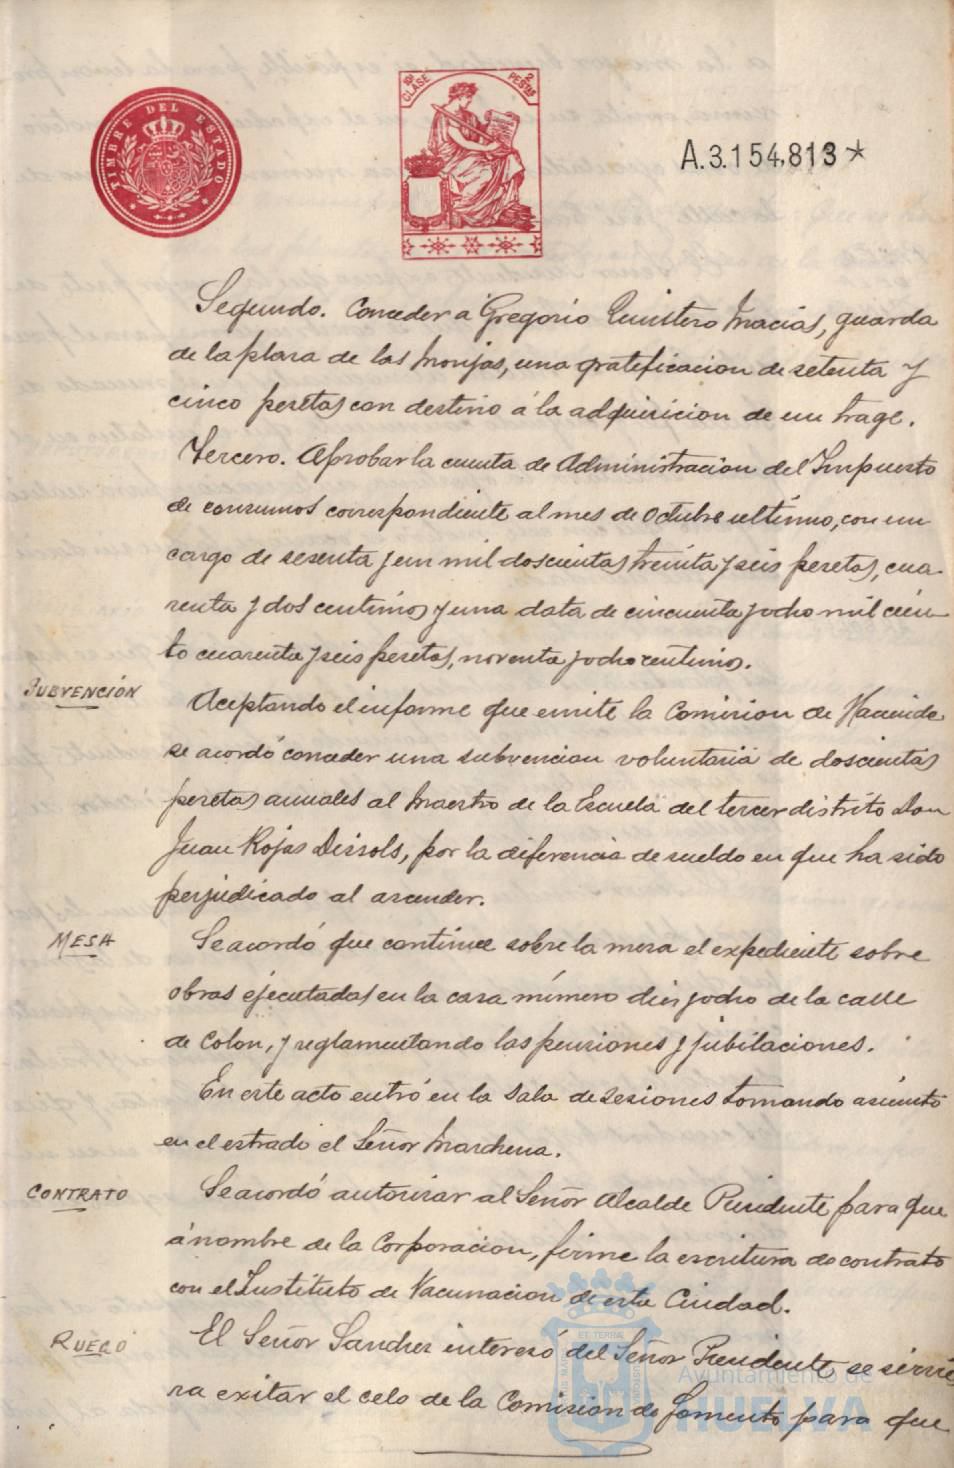 TIMBRE DEL ESTADO
10ª CLASE 2 PESTAS
A.3.154,813*
Segundo. Conceder a Gregorio Quintero Macias, guarda
de la plara de las Monjas, una gratificacion de setenta y
cinco pesetas con destino á la adquisicion de un trage.
Tercero. Aprobar la cuenta de Administracion del Impuesto
de consumos correspondiente al mes de Octubre ultimo, con un
cargo de sesenta y un mil doscientas treinta y seis pesetas, cua-
renta y dos centimos y una data de cincuenta y ocho mil cien-
to cuarenta y seis pesetas, noventa y ocho centimos.
SUBVENCIÓN
Aceptando el informe que emite la Comision de Hacienda
se acordó conceder una subvencion voluntaria de doscientas
pesetas anuales al Maestro de la Escuela del tercer distrito Don
Juan Rojas Dissols, por la diferencia de sueldo en que ha sido
perjudicado al ascender.
MESA
Se acordó que continue sobre la mesa el expediente sobre
obras ejecutadas en la casa número diez y ocho de la calle
de Colon, y reglamentando las pensiones y jubilaciones.
En este acto entró en la Sala de sesiones tomando asiento
en el estrado el Señor Marchena.
CONTRATO
Se acordó autorizar al Señor Alcalde Presidente para que
á nombre de la Corporacion, firme la escritura de contrato
con el Instituto de Vacunacion de esta Ciudad.
RUEGO
El Señor Sanchez interesó del Señor Presidente se sirvie
ra exitar el celo de la Comision de Fomento para que
ET TERRÆ
Ayuntamiento de
HUELVA